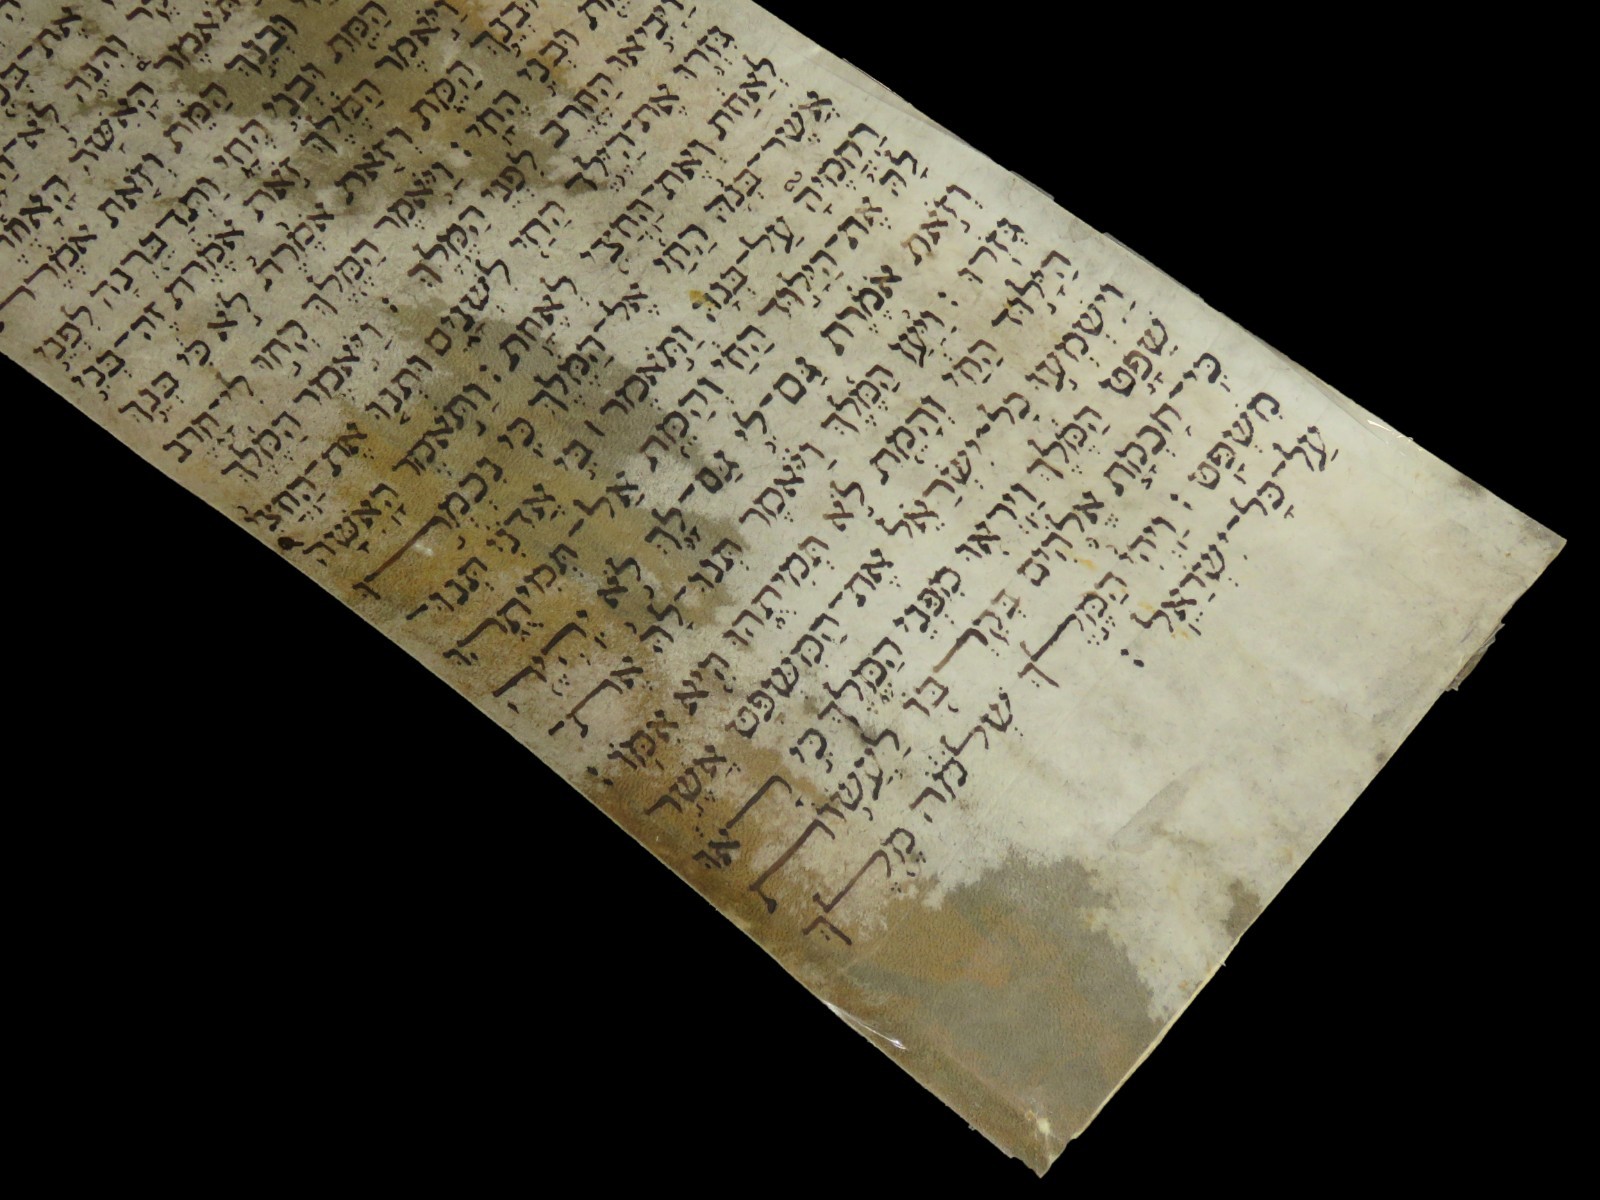 אֶת־בְּנִי
וְהִנֵּה לֹא־הָיָה
וַתֹּאמֶר הָאִשָּׁה הָאַחֶרֶת
וּבְנֵךְ הַמֵּת וְזֹאת אֹמֶרֶת
הַמֵּת וּבְנִי הֶחָי וַתְּדַבֵּרְנָה לִפְנֵי
וַיֹּאמֶר הַמֶּלֶךְ זֹאת אֹמֶרֶת זֶה־בְּנִי
וּבְנֵךְ הַמֵּת וְזֹאת אֹמֶרֶת לֹא כִי בְּנֵךְ
וּבְנִי הֶחָי : וַיֹּאמֶר הַמֶּלֶךְ קְחוּ לִי־חָרֶב
וַיָּבִיאוּ הַחֶרֶב לִפְנֵי הַמֶּלֶךְ : וַיֹּאמֶר הַמֶּלֶךְ
גִּזְרוּ אֶת־הַיֶּלֶד הַחַי לִשְׁנָיִם וּתְנוּ אֶת־הַחֲצִי
לְאַחַת וְאֶת־הַחֲצִי לְאֶחָת : וַתֹּאמֶר הָאִשָּׁה
אֲשֶׁר־בְּנָהּ הַחַי אֶל־הַמֶּלֶךְ כִּי נִכְמְרוּ
רַחֲמֶיהָ עַל־בְּנָהּ וַתֹּאמֶר ׀ בִּי אֲדֹנִי תְּנוּ־
לָהּ אֶת־הַיָּלוּד הַחַי וְהָמֵת אַל־תְּמִיתֻהוּ
וְזֹאת אֹמֶרֶת גַּם־לִי גַם־לָךְ לֹא יִהְיֶה
גְּזֹרוּ : וַיַּעַן הַמֶּלֶךְ וַיֹּאמֶר תְּנוּ־לָהּ אֶת־
הַיָּלוּד הַחַי וְהָמֵת לֹא תְמִיתֻהוּ הִיא אִמּוֹ :
וַיִּשְׁמְעוּ כָל־יִשְׂרָאֵל אֶת־הַמִּשְׁפָּט אֲשֶׁר
שָׁפַט הַמֶּלֶךְ וַיִּרְאוּ מִפְּנֵי הַמֶּלֶךְ כִּי רָאוּ
כִּי־חָכְמַת אֱלֹהִים בְּקִרְבּוֹ לַעֲשׂוֹת
מִשְׁפָּט : וַיְהִי הַמֶּלֶךְ שְׁלֹמֹה מֶלֶךְ
עַל־כָּל־יִשְׂרָאֵל :